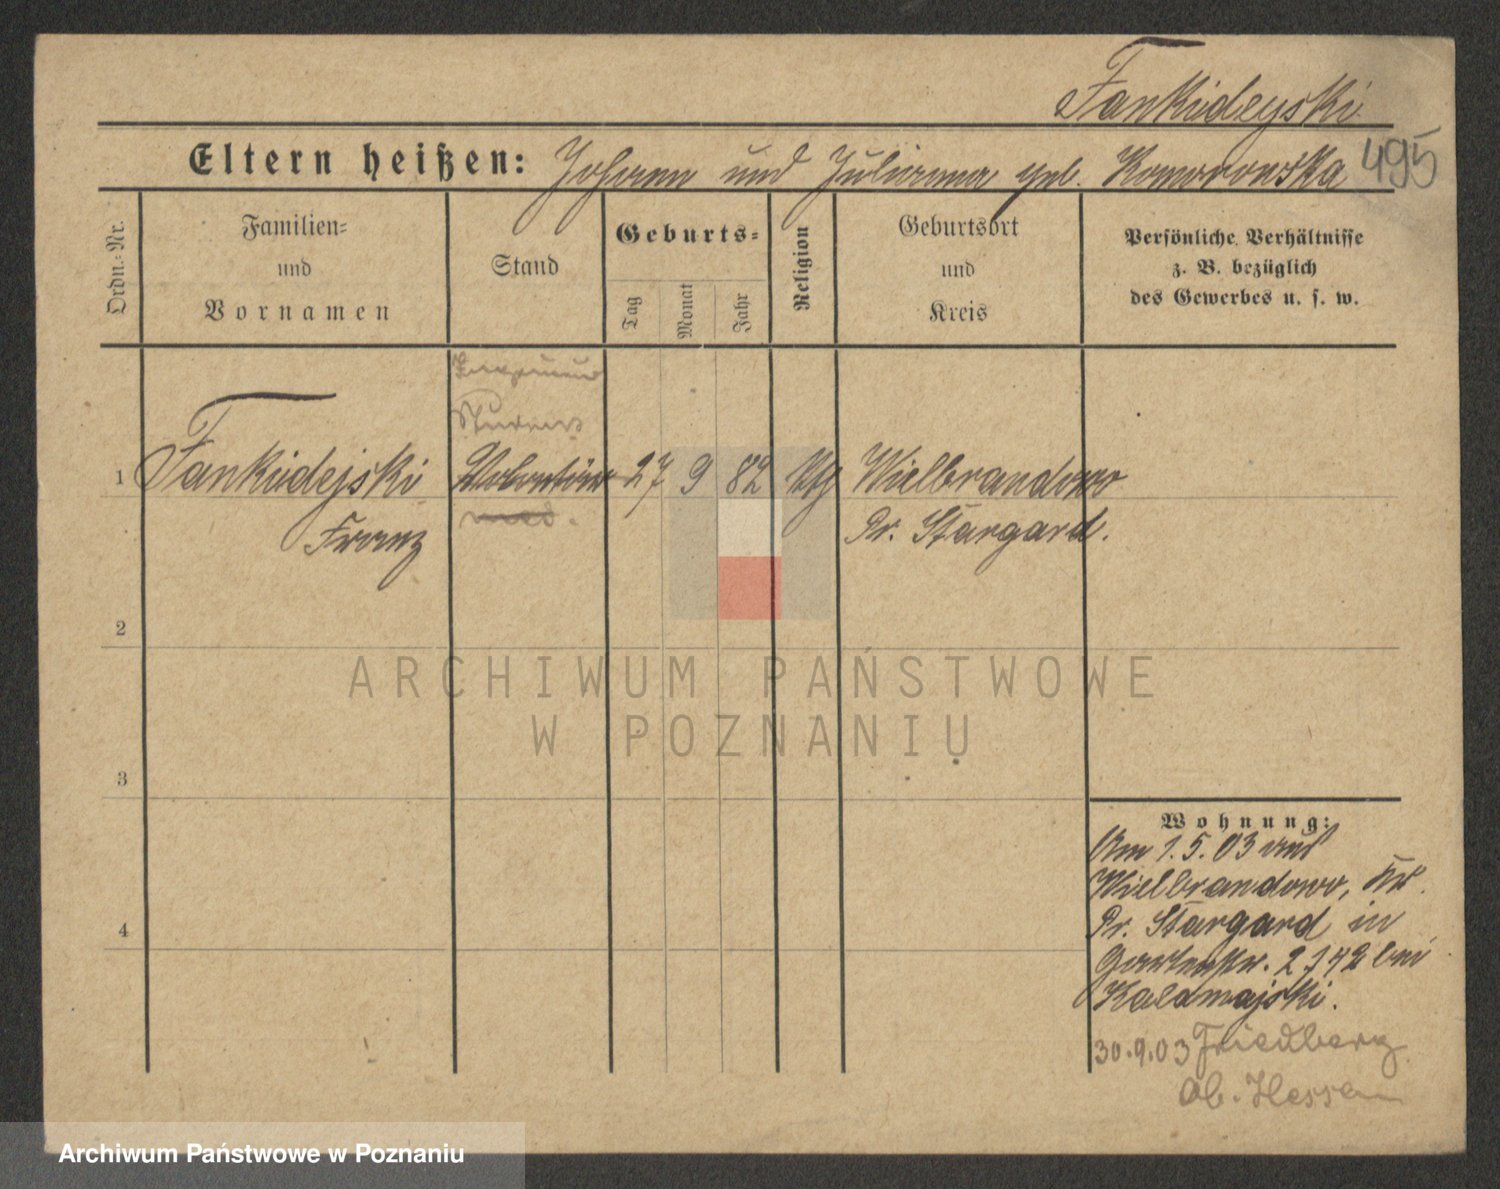 Fankidejski
Eltern heißen: Johann und Julianna geb. Komorowska 495
Ordn.-Nr.
Familien-
und
Vornamen
Stand
Geburts-
Tag
Monat
Jahr
Religion
Geburtsort
und
Kreis
Persönliche Verhältnisse
z. B. bezüglich
des Gewerbes u. s. w.
1 Fankidejski Volontär 27 9 82 Wielbrandowo
Franz Pr. Stargard.
2
3
4
Wohnung:
Am 1.5.03 aus
Wielbrandowo, Kr.
Pr. Stargard in
Gartenstr. 2 bei
Kalamajski.
30.9.03 Friedberg
Ob. Hessen
ARCHIWUM PAŃSTWOWE
W POZNANIU
Archiwum Państwowe w Poznaniu